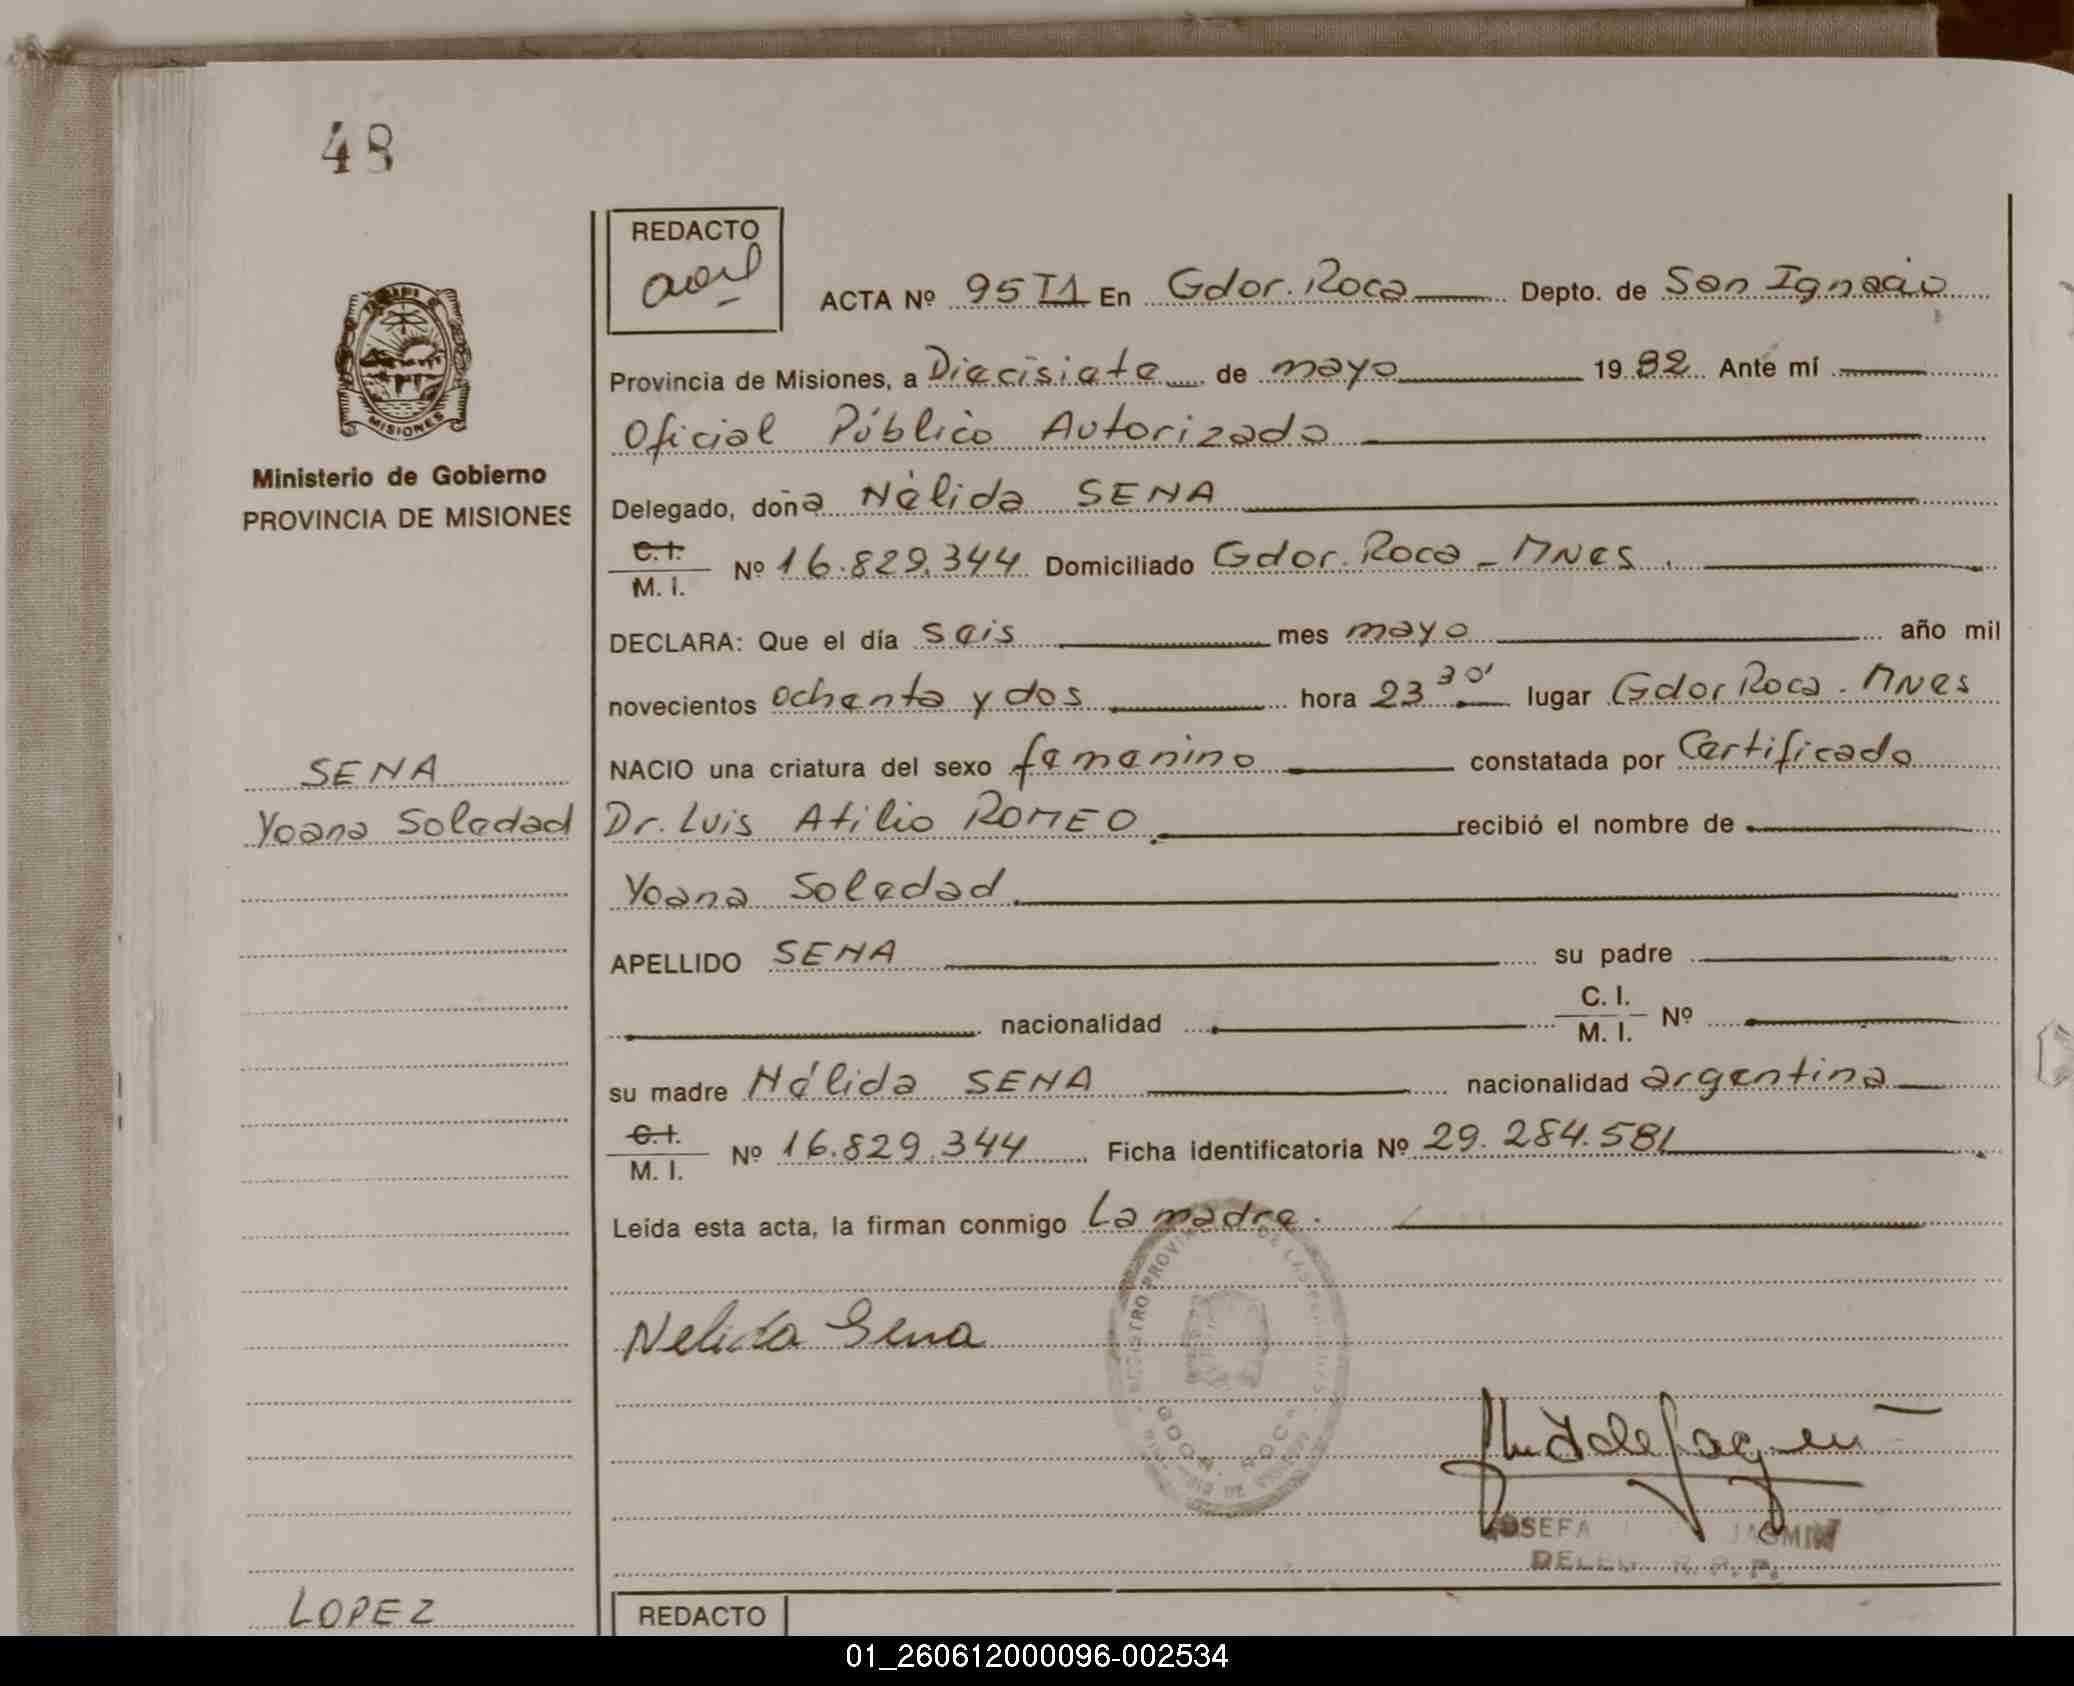 48
REDACTO
ACTA Nº 95 T1 En Gdor. Roca Depto. de San Ignacio
Provincia de Misiones, a Diecisiete de mayo 1982 Ante mí
Oficial Público Autorizado
MISIONES
Ministerio de Gobierno
PROVINCIA DE MISIONES
Delegado, doña Nélida SENA
C. I. / M. I. Nº 16.829.344 Domiciliado Gdor. Roca - Mnes.
DECLARA: Que el día seis mes mayo año mil
novecientos ochenta y dos hora 23 30' lugar Gdor Roca. Mnes
SENA
NACIO una criatura del sexo femenino constatada por Certificado
Yoana Soledad
Dr. Luis Atilio ROMEO recibió el nombre de
Yoana Soledad
APELLIDO SENA su padre
nacionalidad C. I. / M. I. Nº
su madre Nélida SENA nacionalidad argentina
C. I. / M. I. Nº 16.829.344 Ficha identificatoria Nº 29.284.581
Leída esta acta, la firman conmigo La madre.
Nelida Sena
JOSEFA
DELEG. R.P.P.
LOPEZ
REDACTO
01_260612000096-002534